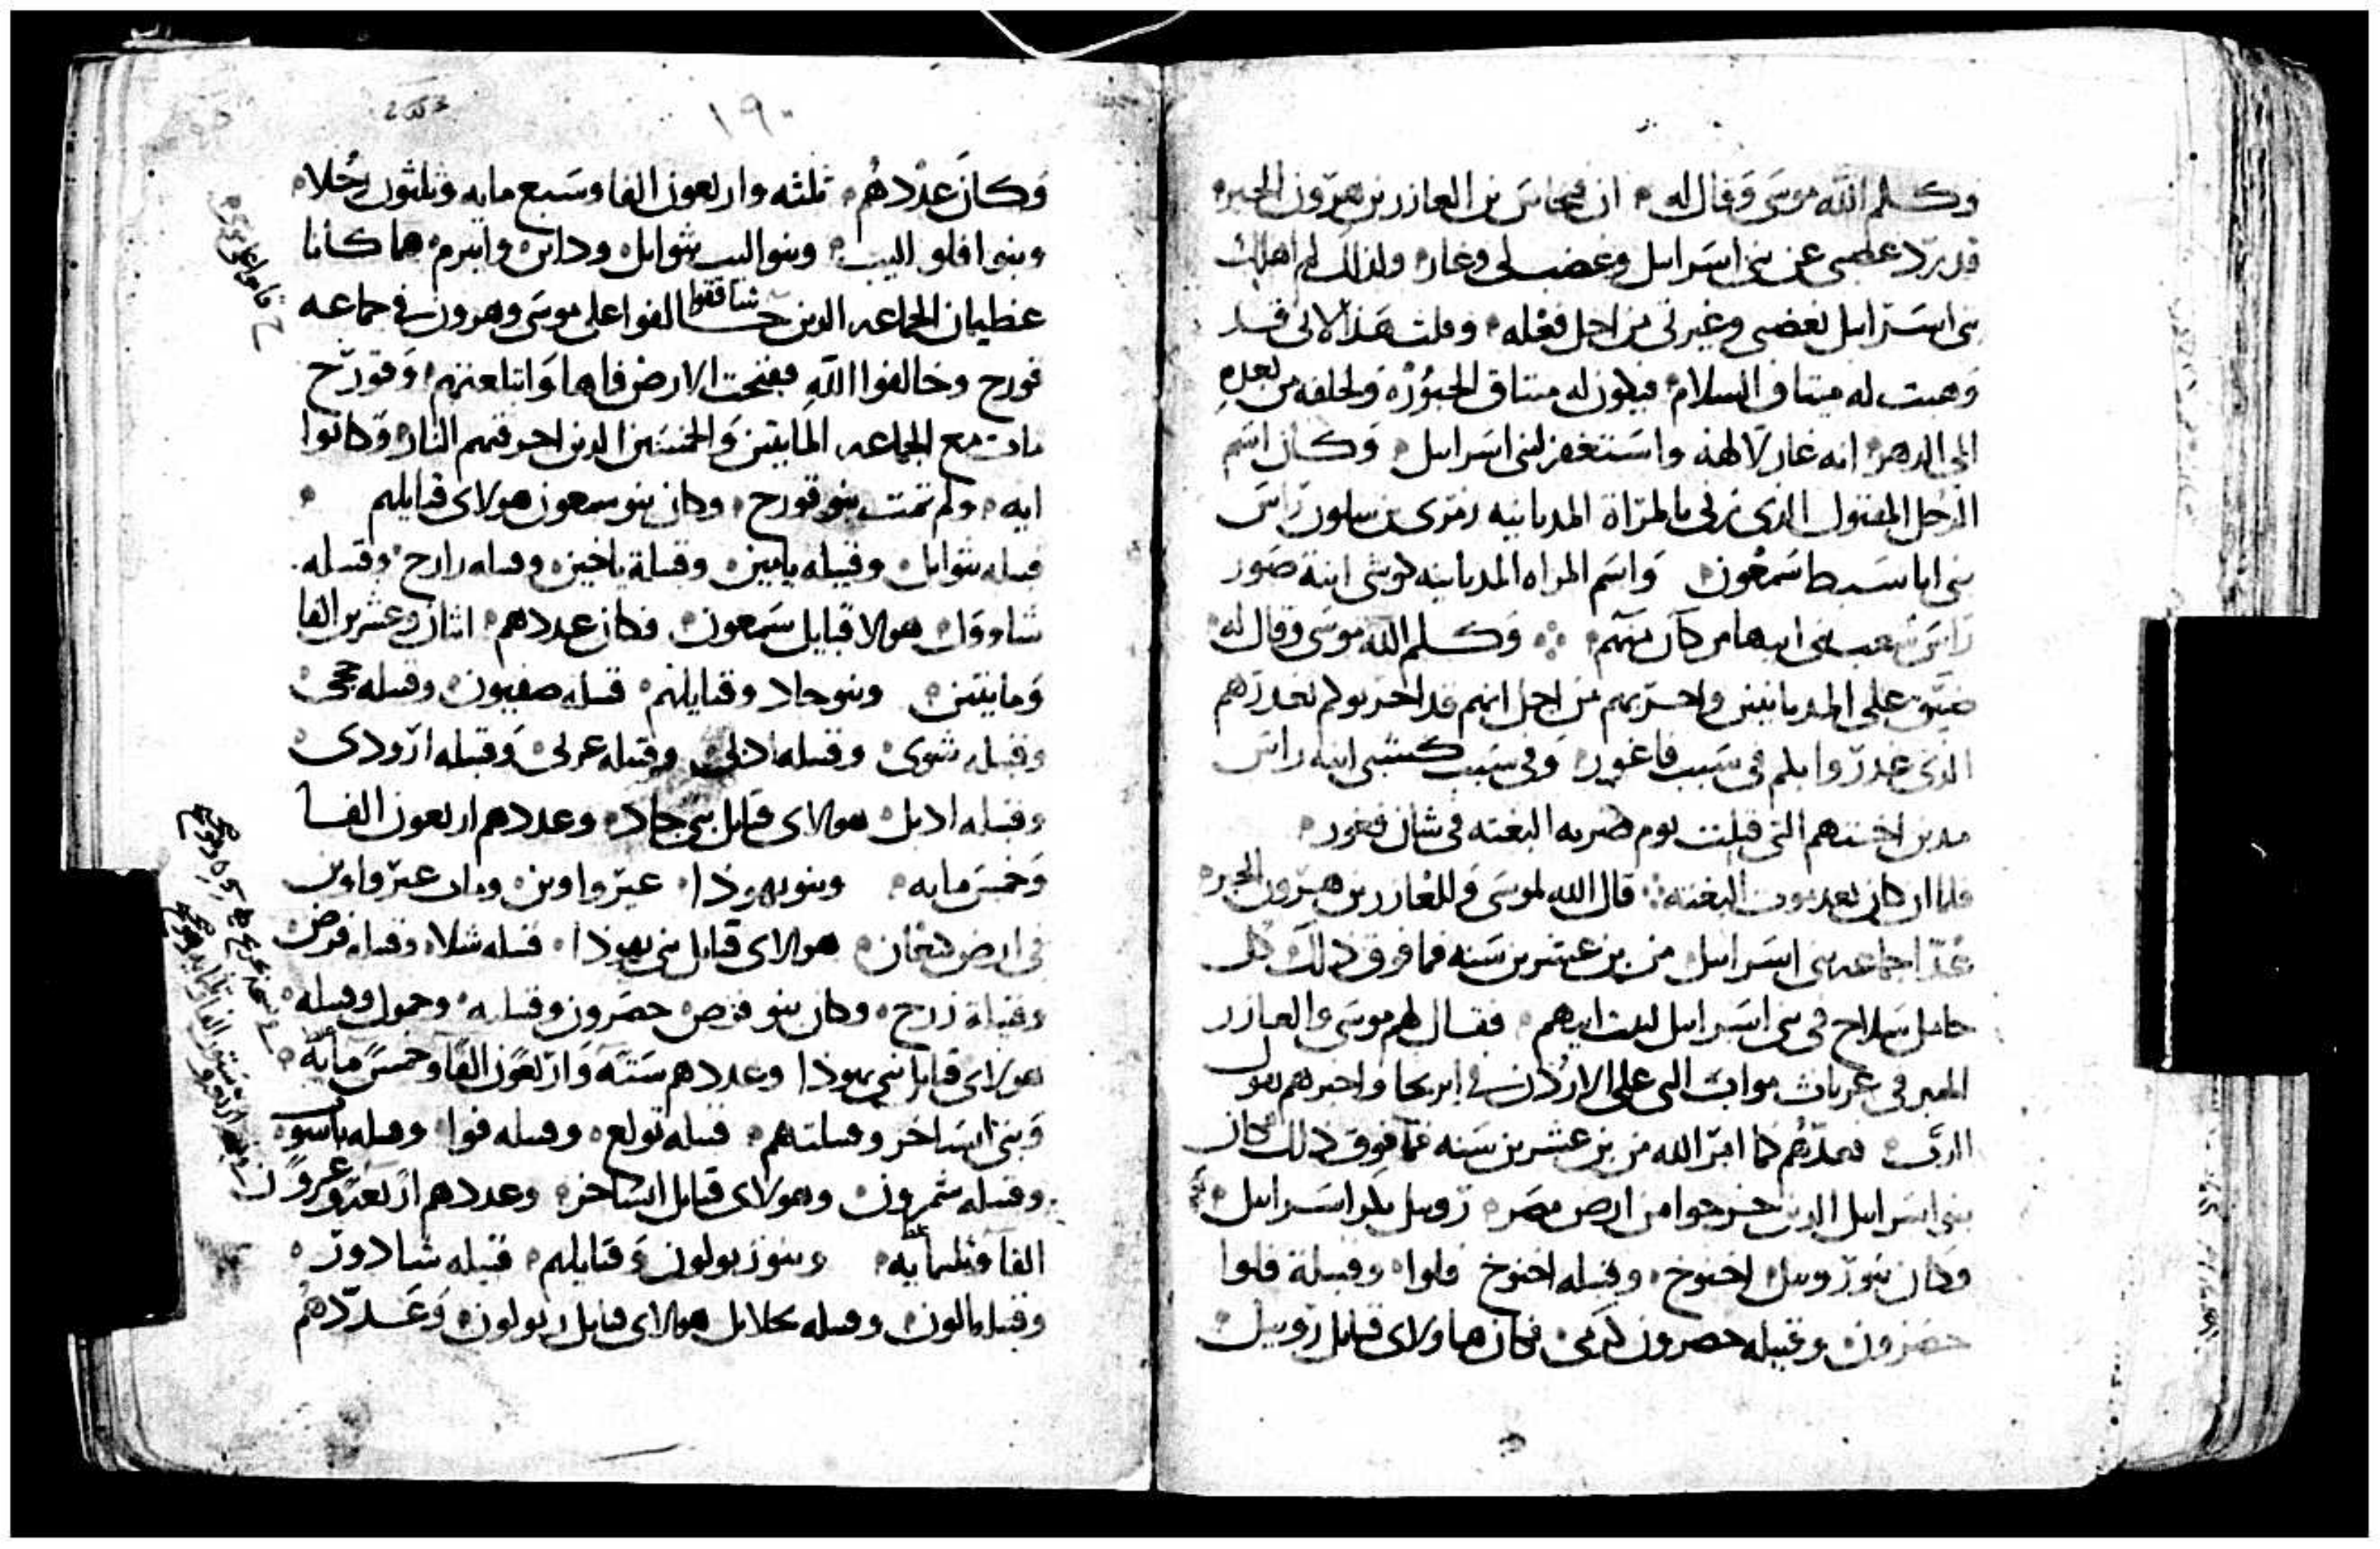 وكلم الله موسى وقال له ان فنحاس بن العازر بن هرون الحبر
قد برد غضبي عن بني اسرايل وغضب لي وغار ولذلك لم اهلك
بني اسرايل بغضبي وغيرتي من اجل فعله وقلت هذا لاني قد
وهبت له ميثاق السلام فيكون له ميثاق الحبورة ولخلفه من بعده
الى الدهر انه غار لالهه واستغفر لبني اسرايل وكان اسم
الرجل المقتول الذي زنى بالمراة المديانيه زمري بن سلون راس
بني ابا سبط شمعون واسم المراه المديانيه كوشي ابنة صور
راس شعب بني ابيها من كان منهم وكلم الله موسى وقال له
ضيق على المديانيين واحزبهم من اجل انهم قد احزبوكم بغدرهم
الذي غدروا بكم في سبب فاغور وفي سبب كسبي ابنه راس
مدين اختهم التي قتلت يوم ضربه البغته في شان فغور
فلما ان كان بعد موت البغته قال الله لموسى وللعازر بن هرون الحبر
عدا جماعه بني اسرايل من بن عشرين سنه فما فوق ذلك كل
حامل سلاح في بني اسرايل لبيت ابيهم فقال لهم موسى والعازر
الحبر في عربات مواب التي على الاردن في ايريحا واخبرهم بقول
الرب فعدهم كما امر الله من بن عشرين سنه فما فوق ذلك كان
بني اسرايل الدين خرجوا من ارض مصر روبيل بكر اسرايل
وكان بنو روبيل اخنوخ وقبيله اخنوخ فلوا وقبيلة فلوا
حضرون وقبيله حصرون كرمي فكان هاولاى قبايل روبيل
وكان عددهم ثلثه واربعون الفا وسبع مايه وثلثون رجلا
وبنوا فلو اليب وبنو اليب شوايل وداثن وابيرم هما كانا
عظيمان الجماعه الدين شاققوا خالفوا على موسى وهرون في جماعه
قورح وخالفوا الله ففتحت الارض فاها وابتلعتهم وقورح
مات مع الجماعه المايتين والخمسين الدين احرقتهم النار وكانوا
ايه ولم تمت بنو قورح وكان بنو سمعون هولاى قبايلهم
قبيله شوايل وقبيله يامين وقبيلة ياخين وقبيله زارح وقبيله
شاوول هولا قبايل شمعون فكان عددهم اثنان وعشرين الفا
ومايتين وبنو جاد وقبايلهم قبيله صفيون وقبيله حجي
وقبيله شوى وقبيله ادلي وقبيله عرلي وقبيله ارودى
وقبيله ادبل هولاى قبايل بني جاد وعددهم اربعون الفا
وخمس مايه وبنو يهوذا عير واوين ومات عير واوين
في ارض كنعان هولاى قبايل بني يهوذا قبيله شلا وقبيله فرص
وقبيلة زرح وكان بنو فرص حصرون وقبيله وحمول وقبيله
هولاى قبايل بني يهوذا وعددهم سته واربعون الفا وخمس مايه
وبني ايساخر وقبيلتهم قبيله تولع وقبيله فوا وقبيله ياسوب
وقبيله شمرون وهولاى قبايل ايساخر وعددهم اربعه وعشرون
الفا وثلثمايه وبنو زبولون وقبايلهم قبيله شادور
وقبيله الون وقبيله يحلايل هولاى قبايل زبولون وعددهم